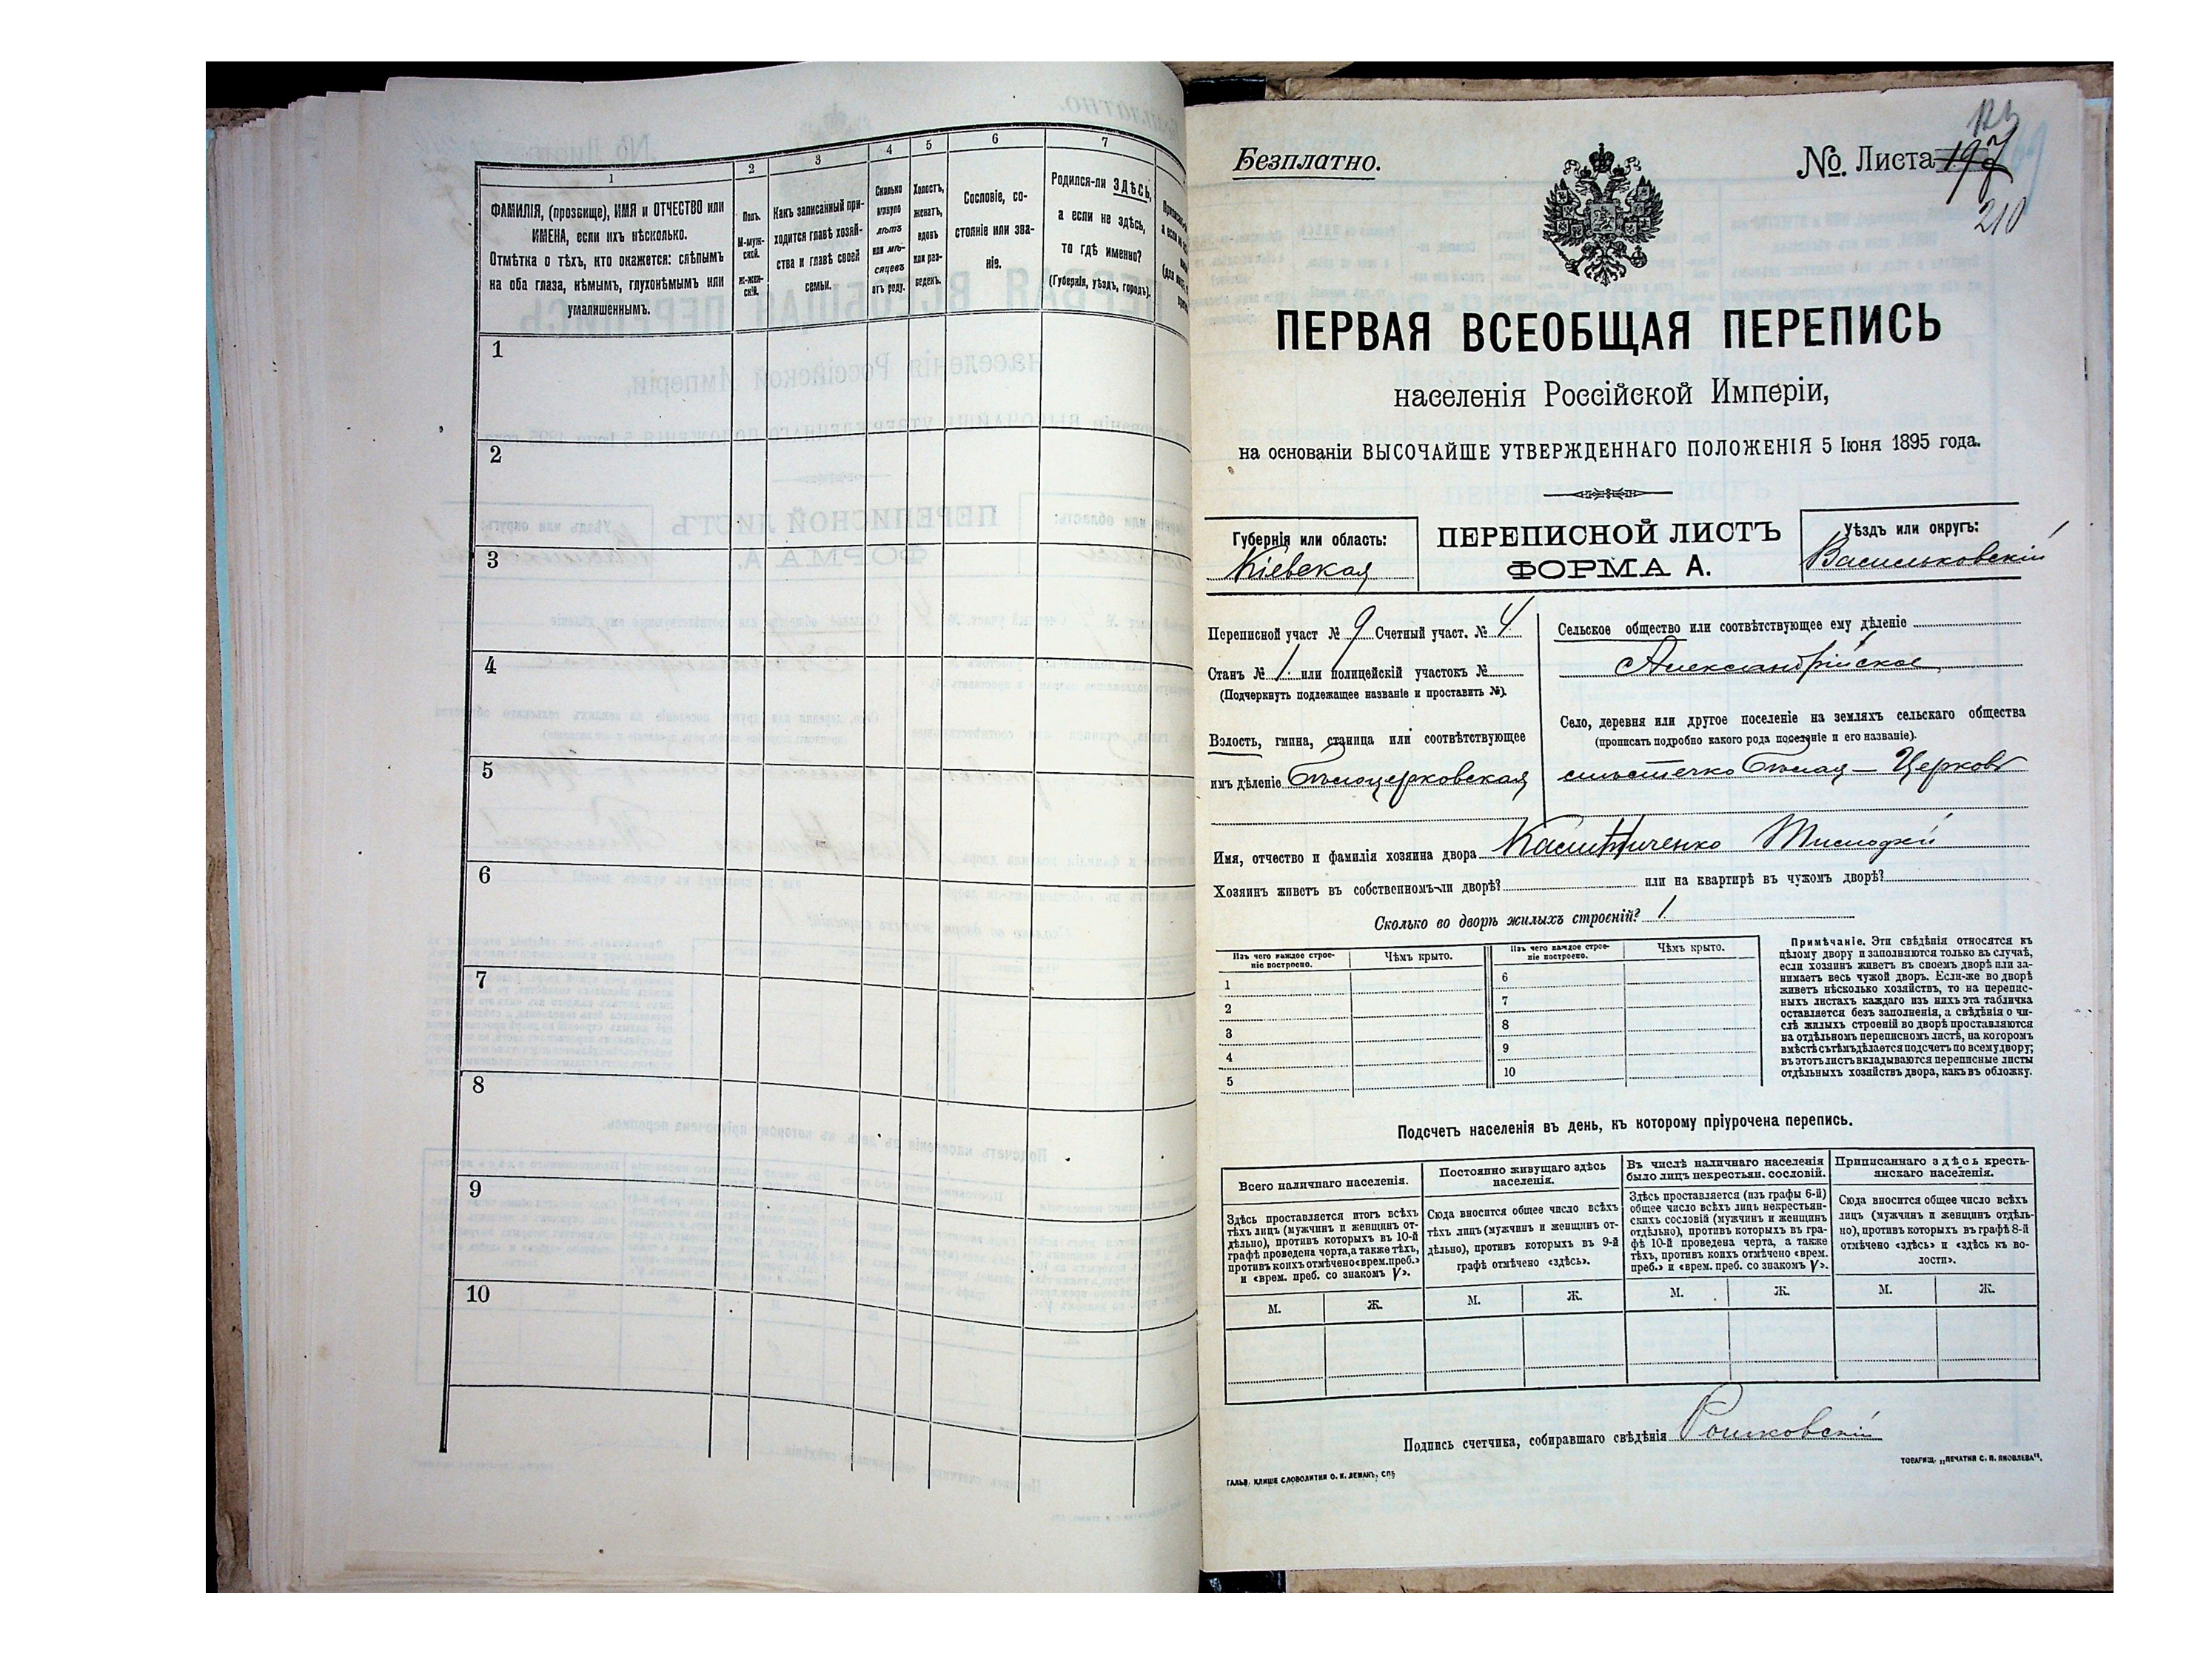 1
2
3
4
5
6
7
ФАМИЛІЯ, (прозбище), ИМЯ и ОТЧЕСТВО или
ИМЕНА, если ихъ нѣсколько.
Отмѣтка о тѣхъ, кто окажется: слѣпымъ
на оба глаза, нѣмымъ, глухонѣмымъ или
умалишеннымъ.
Полъ.
М-муж-
ской.
Ж-жен-
скій.
Какъ записанный при-
ходится главѣ хозяй-
ства и главѣ своей
семьи.
Сколько
минуло
лѣтъ
или мѣ-
сяцевъ
отъ роду.
Холостъ,
женатъ,
вдовъ
или раз-
веденъ.
Сословіе, со-
стояніе или зва-
ніе.
Родился-ли ЗДѢСЬ,
а если не здѣсь,
то гдѣ именно?
(Губернія, уѣздъ, городъ).
1
2
3
4
5
6
7
8
9
10
Безплатно.
№. Листа 197
210
ПЕРВАЯ ВСЕОБЩАЯ ПЕРЕПИСЬ
населенія Россійской Имперіи,
на основаніи ВЫСОЧАЙШЕ УТВЕРЖДЕННАГО ПОЛОЖЕНІЯ 5 Іюня 1895 года.
Губернія или область:
Кіевская
ПЕРЕПИСНОЙ ЛИСТЪ
ФОРМА А.
Уѣздъ или округъ:
Васильковскій
Переписной участ № 9 Счетный участ. № 4
Станъ № 1 или полицейскій участокъ №
(Подчеркнуть подлежащее названіе и проставить №).
Волость, гмина, станица или соотвѣтствующее
имъ дѣленіе Бѣлоцерковская
Сельское общество или соотвѣтствующее ему дѣленіе
Александрійское
Село, деревня или другое поселеніе на земляхъ сельскаго общества
(прописать подробно какого рода поселеніе и его названіе).
мѣстечко Бѣлая-Церковь
Имя, отчество и фамилія хозяина двора Калиниченко Тимофѣй
Хозяинъ живетъ въ собственномъ-ли дворѣ? или на квартирѣ въ чужомъ дворѣ?
Сколько во дворѣ жилыхъ строеній? 1
Изъ чего каждое строе-
ніе построено.
Чѣмъ крыто.
Изъ чего каждое строе-
ніе построено.
Чѣмъ крыто.
1
2
3
4
5
6
7
8
9
10
Примѣчаніе. Эти свѣдѣнія относятся къ
цѣлому двору и заполняются только въ случаѣ,
если хозяинъ живетъ въ своемъ дворѣ или за-
нимаетъ весь чужой дворъ. Если-же во дворѣ
живетъ нѣсколько хозяйствъ, то на перепис-
ныхъ листахъ каждаго изъ нихъ эта табличка
оставляется безъ заполненія, а свѣдѣнія о чи-
слѣ жилыхъ строеній во дворѣ проставляются
на отдѣльномъ переписномъ листѣ, на которомъ
вмѣстѣ съ тѣмъ дѣлается подсчетъ по всему двору;
въ этотъ листъ вкладываются переписные листы
отдѣльныхъ хозяйствъ двора, какъ въ обложку.
Подсчетъ населенія въ день, къ которому пріурочена перепись.
Всего наличнаго населенія.
Здѣсь проставляется итогъ всѣхъ
тѣхъ лицъ (мужчинъ и женщинъ от-
дѣльно), противъ которыхъ въ 10-й
графѣ проведена черта, а также тѣхъ,
противъ коихъ отмѣчено «врем. преб.»
и «врем. преб. со знакомъ V».
Постоянно живущаго здѣсь
населенія.
Сюда вносится общее число всѣхъ
тѣхъ лицъ (мужчинъ и женщинъ от-
дѣльно), противъ которыхъ въ 9-й
графѣ отмѣчено «здѣсь».
Въ числѣ наличнаго населенія
было лицъ некрестьян. сословій.
Здѣсь проставляется (изъ графы 6-й)
общее число всѣхъ лицъ некрестьян-
скихъ сословій (мужчинъ и женщинъ
отдѣльно), противъ которыхъ въ гра-
фѣ 10-й проведена черта, а также
тѣхъ, противъ коихъ отмѣчено «врем.
преб.» и «врем. преб. со знакомъ V».
Приписаннаго здѣсь кресть-
янскаго населенія.
Сюда вносится общее число всѣхъ
лицъ (мужчинъ и женщинъ отдѣль-
но), противъ которыхъ въ графѣ 8-й
отмѣчено «здѣсь» и «здѣсь къ во-
лости».
М. Ж. М. Ж. М. Ж. М. Ж.
Подпись счетчика, собиравшаго свѣдѣнія Рошковскій
ГАЛЬВ. КЛИШЕ СЛОВОЛИТНИ О. И. ЛЕМАНЪ, СПБ
ТОВАРИЩ. „ПЕЧАТНЯ С. П. ЯКОВЛЕВА“.